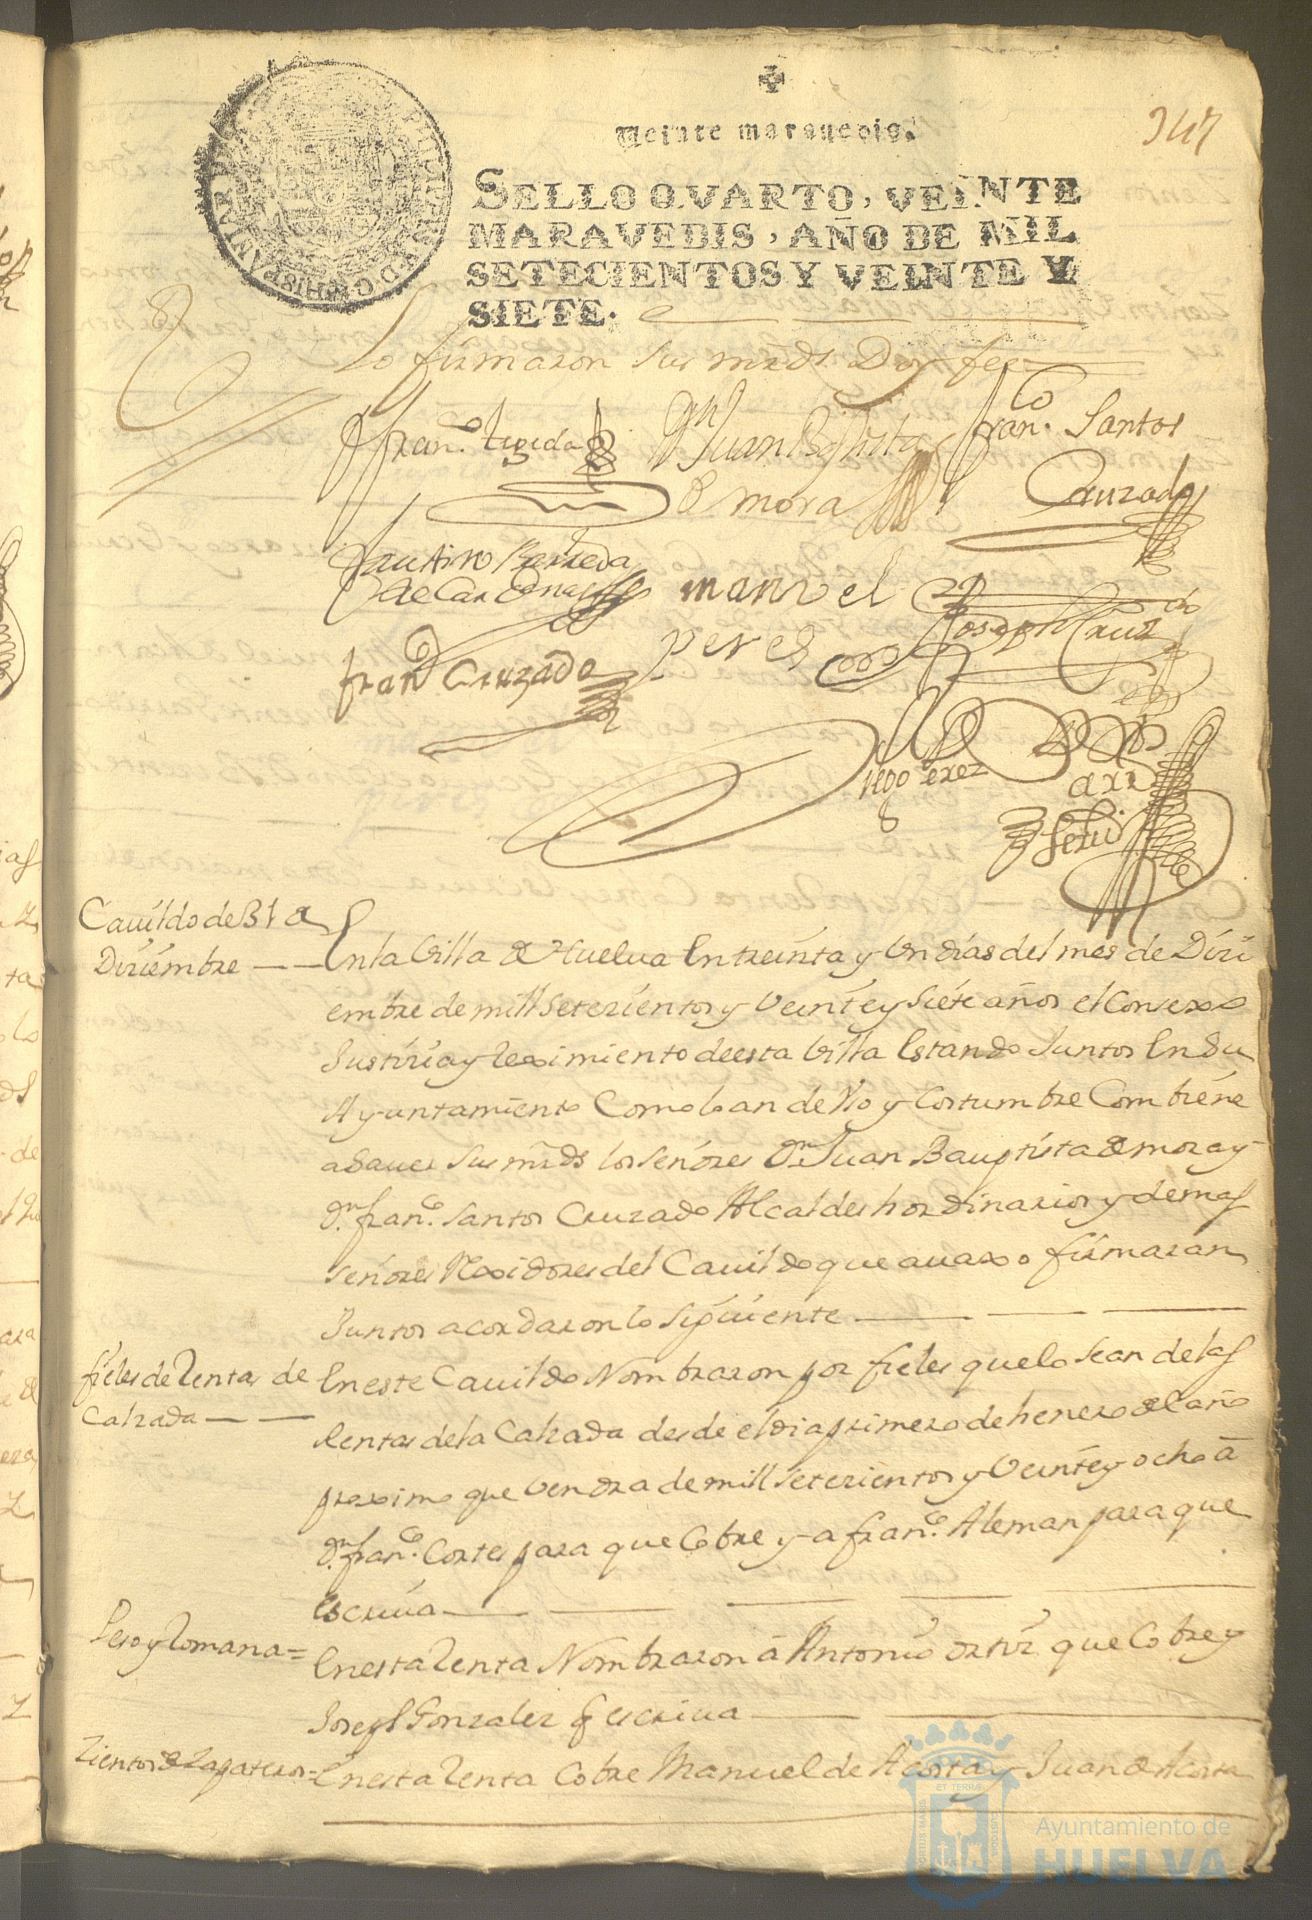 347
Veinte maravedis.
SELLO QVARTO, VEINTE
MARAVEDIS, AÑO DE MIL
SETECIENTOS Y VEINTE Y
SIETE.
Lo firmaron sus mrds Doy fee
franco. tegeda
Dn Juan Baptista
de mora
franco. Santos
Cruzado
faustino Barreda
de Cardenas
manvel
peres
Joseph Cruz
franco Cruzado
Cauildo de 31 de
Diziembre
En la Villa de Huelua En treinta y Un dias del mes de Dizi
embre de mill Setezientos y Veinte y Siete años el Consexo
Justizia y Reximiento de esta Villa Estando Juntos En Su
Ayuntamiento Como lo an de Vso y Costumbre Combiene
a Sauer Sus mrds los Señores Dn. Juan Bauptista de mora y
Dn. franco. Santos Cruzado Alcaldes hordinarios y demas
Señores Rexidores del Cauildo que auaxo firmaran
Juntos acordaron lo Siguiente
fieles de Rentas de
Calzada
En este Cauildo Nombraron por fieles que lo Sean de las
Rentas de la Calzada desde el dia primero de henero del año
proximo que Vendra de mill Setezientos y Veinte y ocho â
Dn. franco. Cortes para que Cobre y a franco. Aleman para que
Escriua
Peso y Romana =
En esta Renta Nombraron â Antonio ortiz que Cobre y
Joseph Gonzalez q escriua
Zientos de Zapateros =
En esta Renta Cobre Manuel de Acosta y Juan de Acosta
Ayuntamiento de
HUELVA